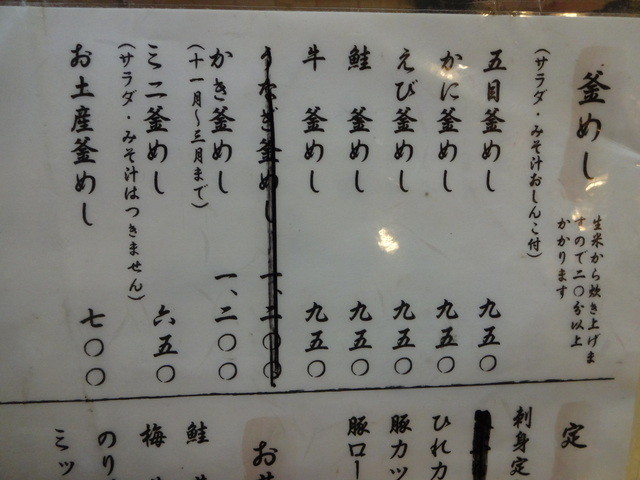 釜めし
生米から炊き上げま
すので二〇分以上
かかります
(サラダ・みそ汁おしんこ付)
五目釜めし 九五〇
かに釜めし 九五〇
えび釜めし 九五〇
鮭釜めし 九五〇
牛釜めし 九五〇
うなぎ釜めし 一、三〇〇
かき釜めし 一、二〇〇
(十一月〜三月まで)
ミニ釜めし 六五〇
(サラダ・みそ汁はつきません)
お土産釜めし 七〇〇
定
刺身定
ひれカ
豚カツ
豚ロー
お茶
鮭
梅
のり
ミッ